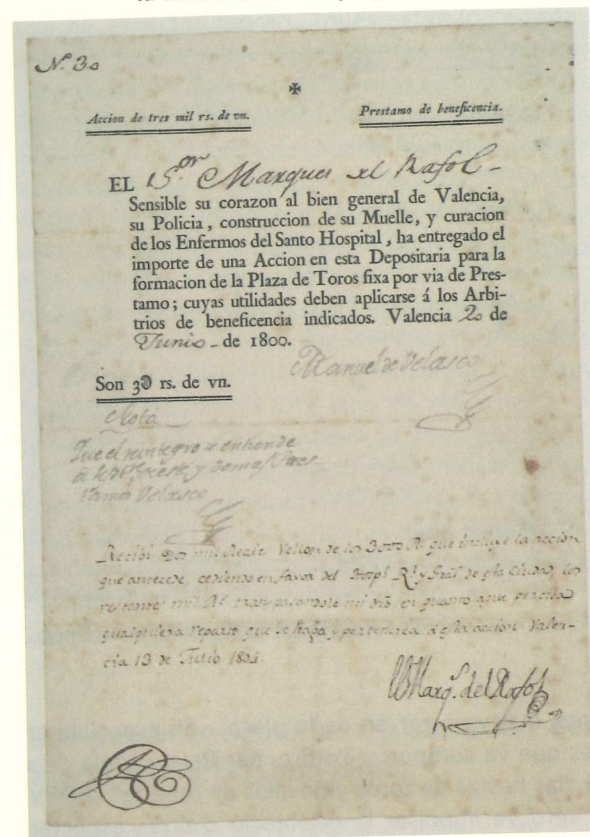 N.º 30
Accion de tres mil rs. de vn.
Prestamo de beneficencia.
EL S.or Marques del Rafol
Sensible su corazon al bien general de Valencia,
su Policia, construccion de su Muelle, y curacion
de los Enfermos del Santo Hospital, ha entregado el
importe de una Accion en esta Depositaria para la
formacion de la Plaza de Toros fixa por via de Pres-
tamo; cuyas utilidades deben aplicarse á los Arbi-
trios de beneficencia indicados. Valencia 20 de
Junio de 1800.
Manuel de Velasco
Son 3@ rs. de vn.
Nota
Que el reintegro se entiende
Velasco
Recibi Dos mil Reales Vellon de los 3000 Rs que incluye la accion
que antecede, cediendo en favor del Hospl Rl y Gral de esta Ciudad, los
restantes mil Rs transpasandole mi dro en quanto a que perciba
qualquiera reparto que se haga y pertenezca a esta accion Valen-
cia 13 de Julio 1804
El Marq.s del Rafol